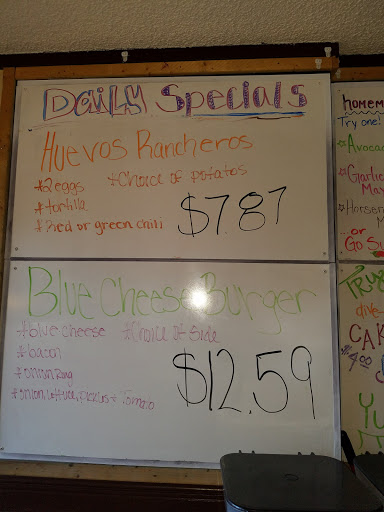 Daily Specials
Huevos Rancheros
*2 eggs *Choice of potatos
*tortilla
*Red or green chili
$7.87
Blue Cheese Burger
*blue cheese *Choice of Side
*bacon
*onion Ring
*onion, lettuce, Pickles + Tomato
$12.59
Homem
Try one!
*Avoca
*Garlic
Ma
*Horser
M
..or
Go S
Try
CA
$4.00